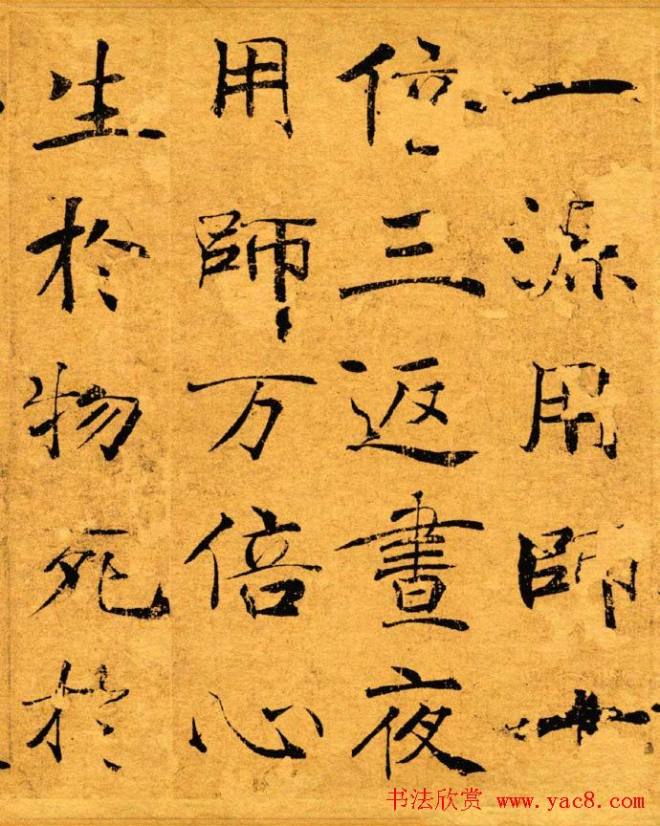 一源用師十
倍三返晝夜
用師万倍心
生於物死於
书法欣赏 www.yac8.com